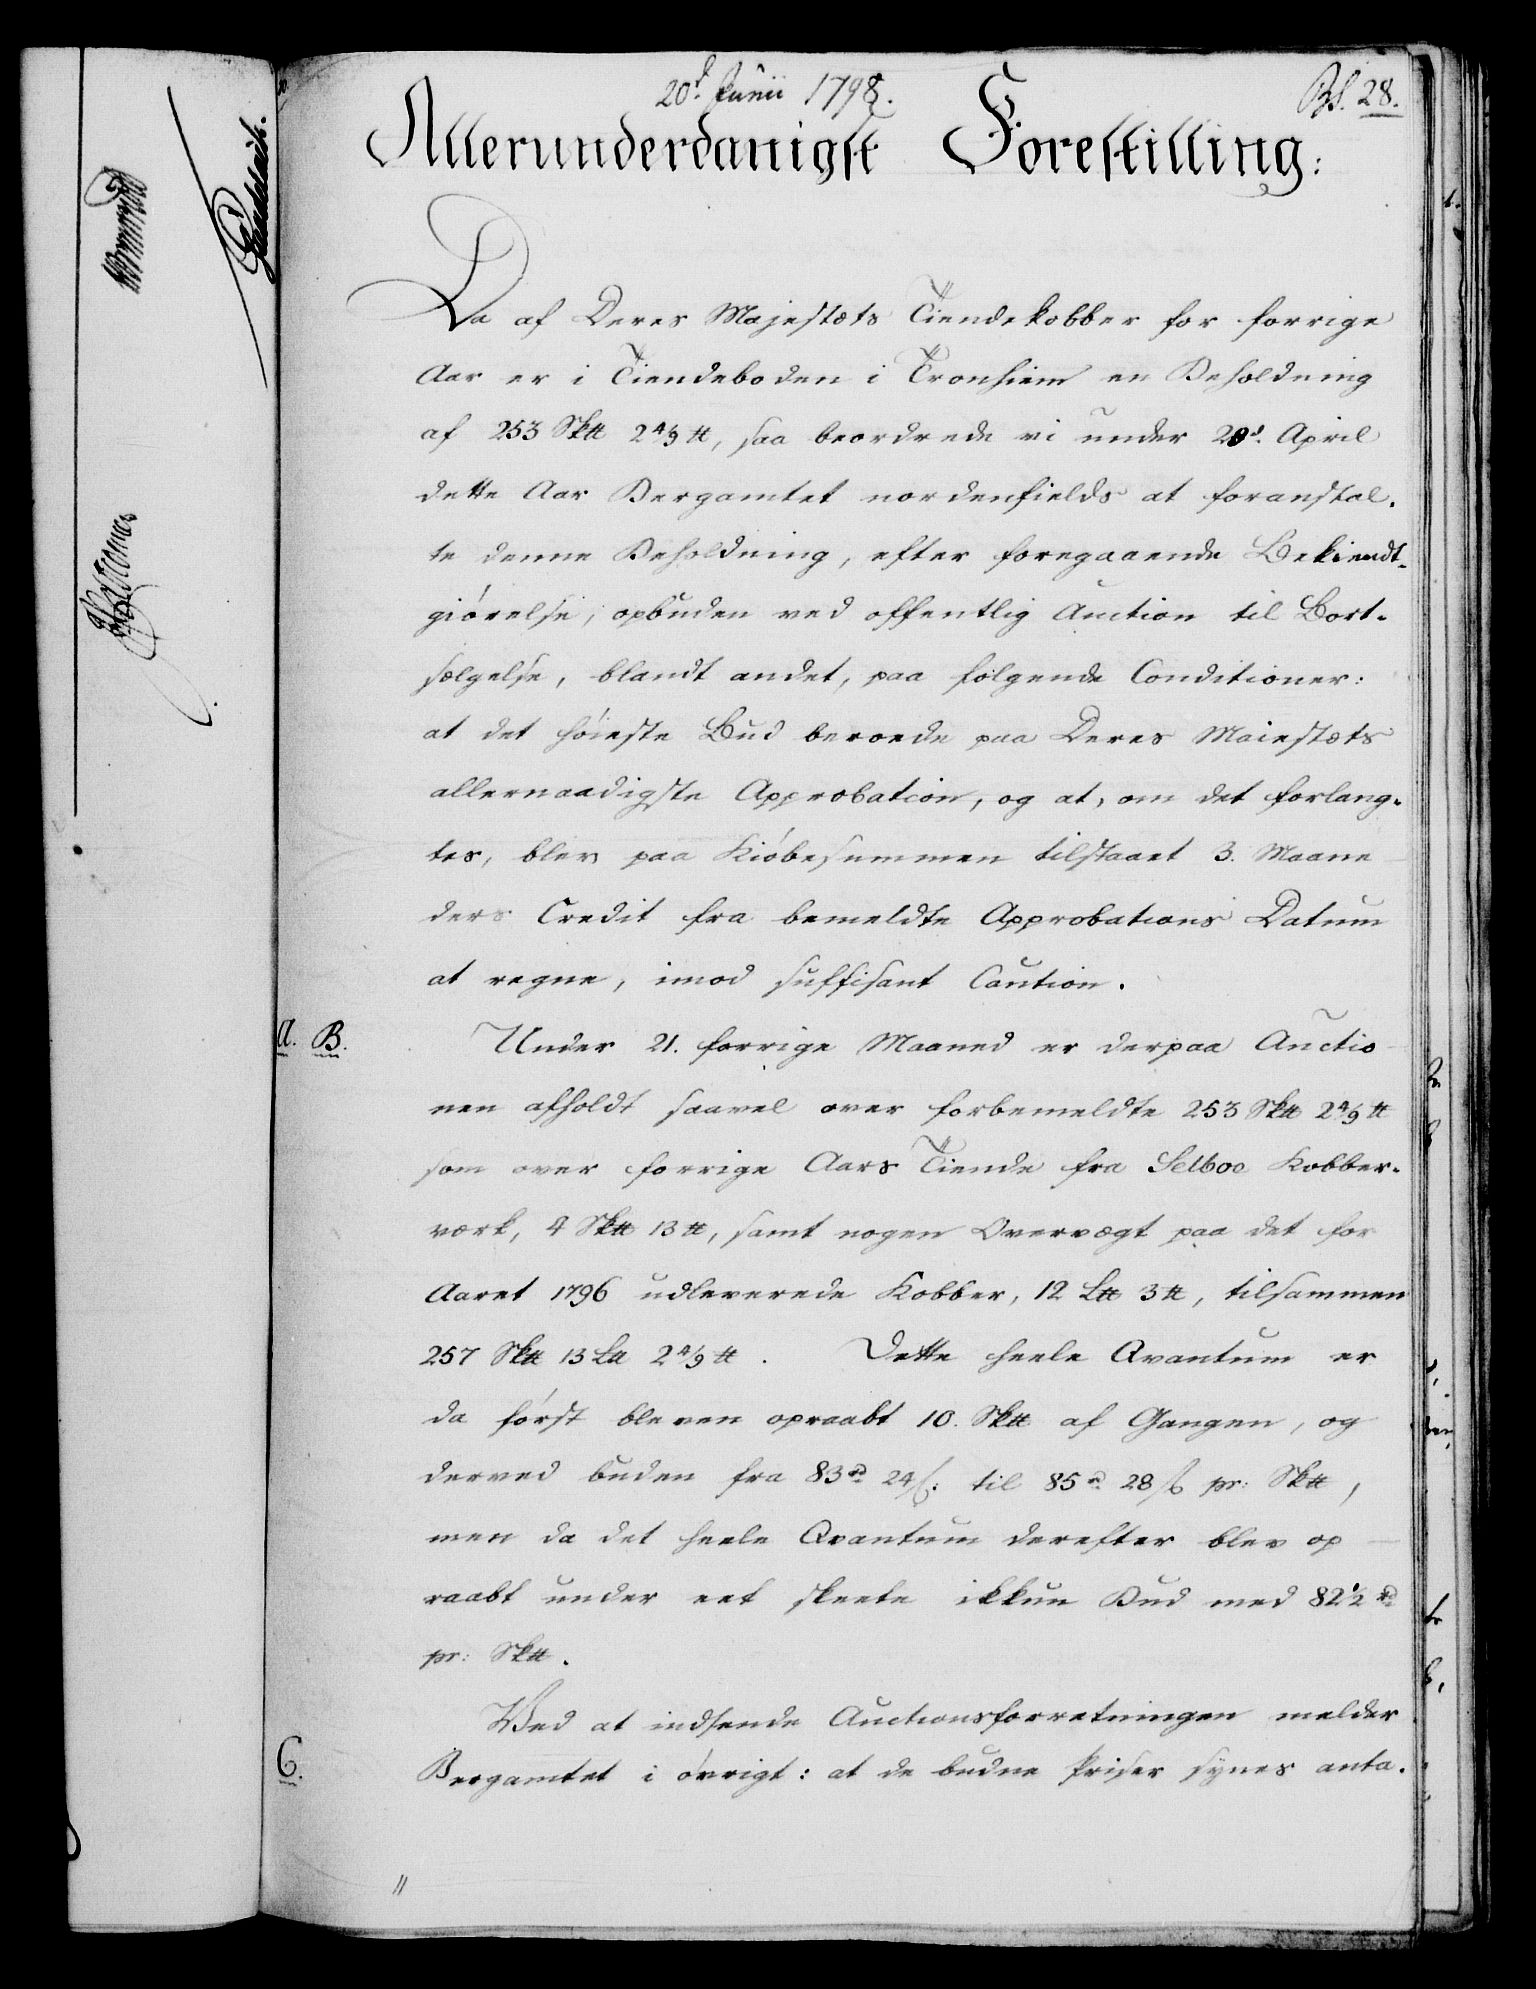 20d Junii 1798.
Bl. 28.
Allerunderdanigst Forestilling:
Da af Deres Majestæts Tiendekobber for forrige
Aar er i Tiendeboden i Tronhiem en Beholdning
af 253 Sk℔ 2 4/9 ℔, saa beordrede vi under 28d. April
dette Aar Bergamtet nordenfields at foranstal-
te denne Beholdning, efter foregaaende Bekiendt-
giørelse, opbuden ved offentlig Auction til Bort-
sælgelse, blandt andet, paa følgende Conditioner:
at det høieste Bud beroede paa Deres Maiestæts
allernaadigste Approbation, og at, om det forlang-
tes, blev paa Kiøbesummen tilstaaet 3. Maane
ders Credit fra bemeldte Approbations Datum
at regne, imod suffisant Caution.
A. B.
Under 21. forrige Maaned er derpaa Auctio
nen afholdt saavel over forbemeldte 253 Sk℔ 2 4/9 ℔
som over forrige Aars Tiende fra Selboe Kobber-
værk, 4 Sk℔ 13 ℔, samt nogen Overvægt paa det for
Aaret 1796 udleverede Kobber, 12 L℔ 3 ℔, tilsammen
257 Sk℔ 13 L℔ 2 4/9 ℔. Dette heele Qvantum er
da først bleven opraabt 10. Sk℔ af Gangen, og
derved buden fra 83 rd 24 ß. til 85 rd 28 ß pr: Sk℔,
men da det heele Qvantum derefter blev op
raabt under eet skeete ikkun Bud med 82 1/2 rd
pr: Sk℔.
Ved at indsende Auctionsforretningen melder
C.
Bergamtet i øvrigt: at de budne Priser synes anta-